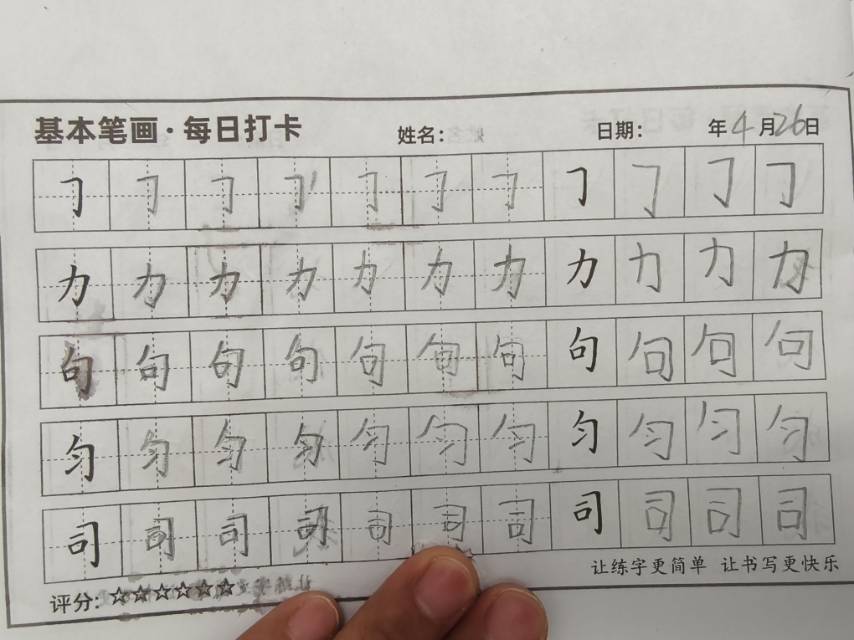 基本笔画·每日打卡 姓名: 日期: 年4月26日
㇆㇆㇆㇆㇆㇆㇆㇆㇆㇆㇆
力力力力力力力力力力力
句句句句句句句句句句句
匀匀匀匀匀匀匀匀匀匀匀
司司司司司司司司司司司
让练字更简单 让书写更快乐
评分:☆☆☆☆☆☆